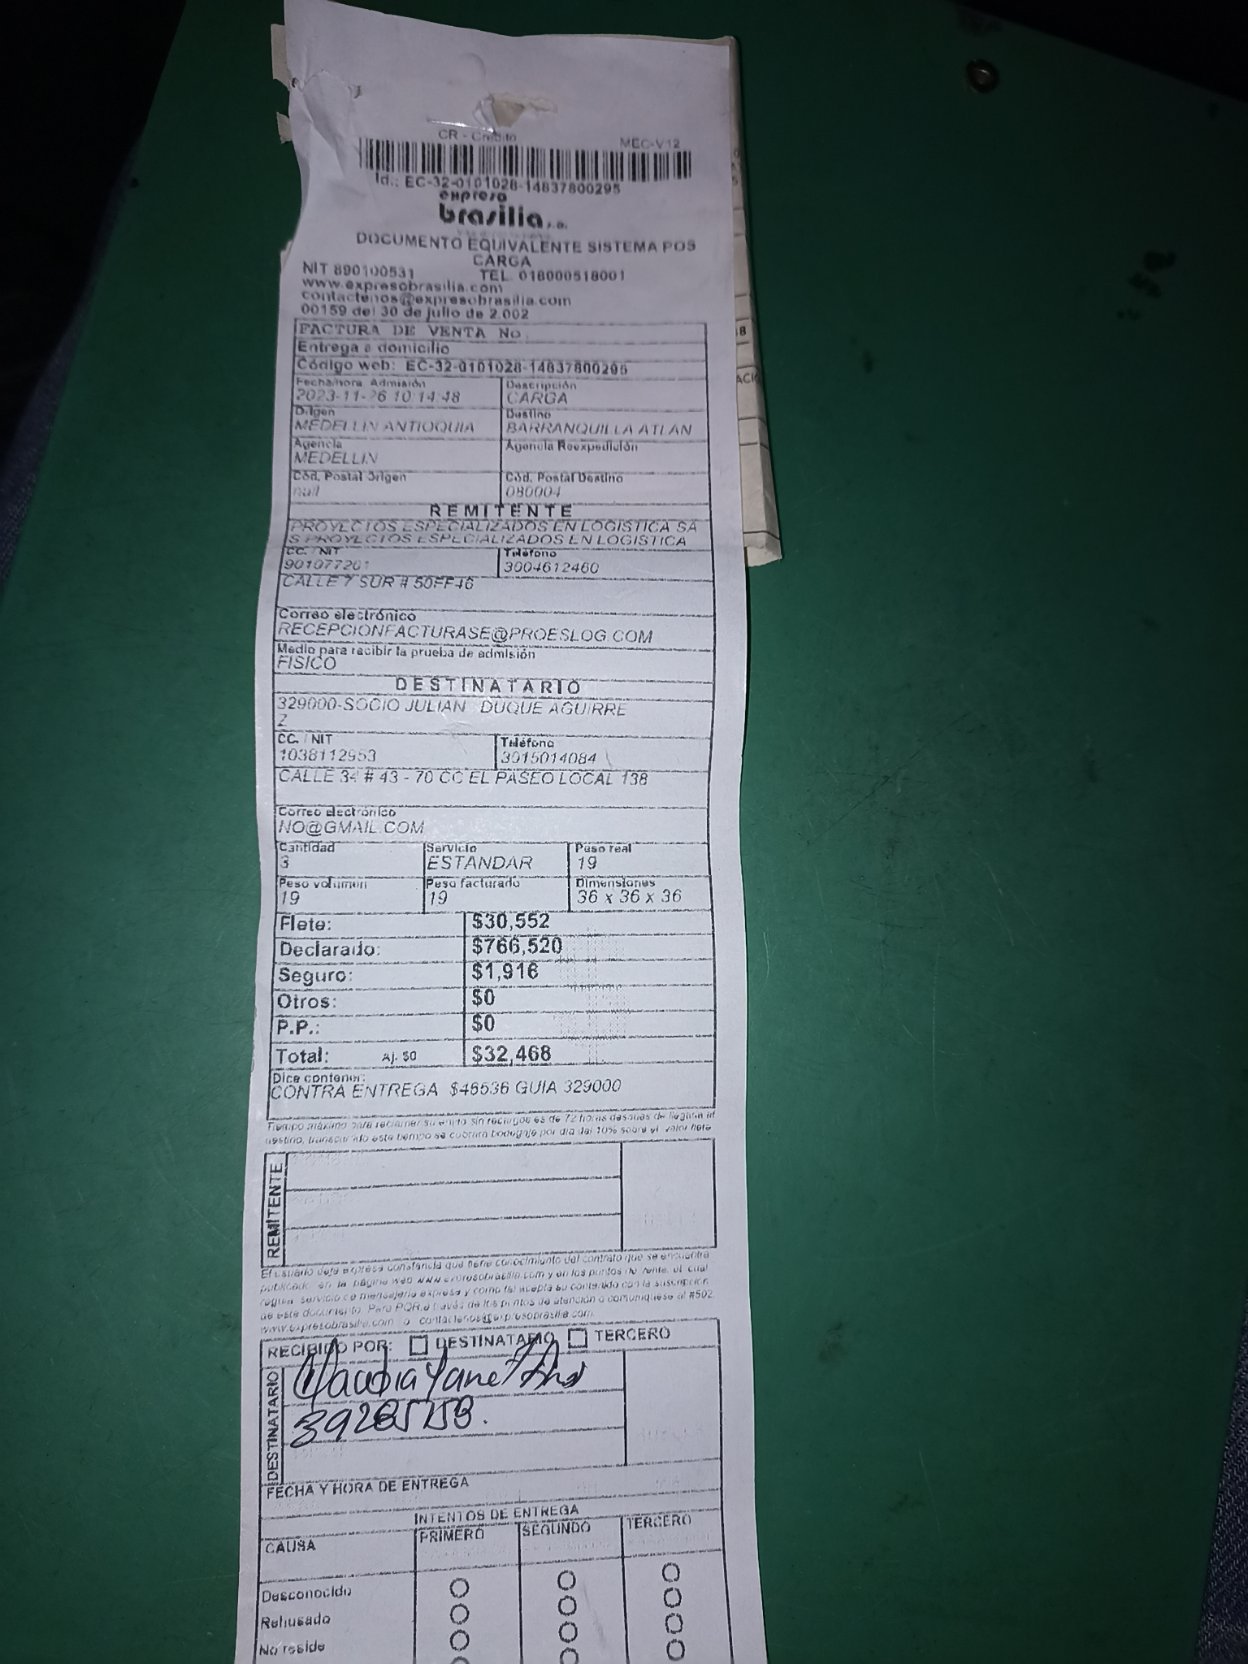 CR - Credito MEC-V12
Id.: EC-32-0101028-14837800295
expreso
brasilia s.a.
DOCUMENTO EQUIVALENTE SISTEMA POS
CARGA
NIT 890100531 TEL. 018000518001
www.expresobrasilia.com
contactenos@expresobrasilia.com
00159 del 30 de julio de 2.002
FACTURA DE VENTA No
Entrega a domicilio
Código web: EC-32-0101028-14837800295
Fecha/hora Admisión Descripción
2023-11-26 10:14:48 CARGA
Origen Destino
MEDELLIN ANTIOQUIA BARRANQUILLA ATLAN
Agencia Agencia Reexpedición
MEDELLIN
Cód. Postal Origen Cód. Postal Destino
null 080004
REMITENTE
PROYECTOS ESPECIALIZADOS EN LOGISTICA SA
S PROYECTOS ESPECIALIZADOS EN LOGISTICA
CC. / NIT Teléfono
901077201 3004612460
CALLE 7 SUR # 50FF46
Correo electrónico
RECEPCIONFACTURASE@PROESLOG.COM
Medio para recibir la prueba de admisión
FISICO
DESTINATARIO
329000-SOCIO JULIAN DUQUE AGUIRRE
Z
CC. / NIT Teléfono
1038112953 3015014084
CALLE 34 # 43 - 70 CC EL PASEO LOCAL 138
Correo electrónico
NO@GMAIL.COM
Cantidad Servicio Peso real
3 ESTANDAR 19
Peso volumen Peso facturado Dimensiones
19 19 36 x 36 x 36
Flete: $30,552
Declarado: $766,520
Seguro: $1,916
Otros: $0
P.P.: $0
Total: Aj. $0 $32,468
Dice contener:
CONTRA ENTREGA $46536 GUIA 329000
Tiempo máximo para reclamar su envío sin recargos es de 72 horas después de llegada al
destino, transcurrido este tiempo se cobrará bodegaje por día del 10% sobre el valor flete
REMITENTE
El usuario deja expresa constancia que tiene conocimiento del contrato que se encuentra
publicado en la página web www.expresobrasilia.com y en los puntos de venta, el cual
regula servicio de mensajería expresa y como tal acepta su contenido con la suscripción
de este documento. Para PQR a través de los puntos de atención o comuníquese al #502
www.expresobrasilia.com o contactenos@expresobrasilia.com
RECIBIDO POR: DESTINATARIO TERCERO
DESTINATARIO
Claudia Yanet
39285158.
FECHA Y HORA DE ENTREGA
INTENTOS DE ENTREGA
CAUSA PRIMERO SEGUNDO TERCERO
Desconocido
Rehusado
No reside